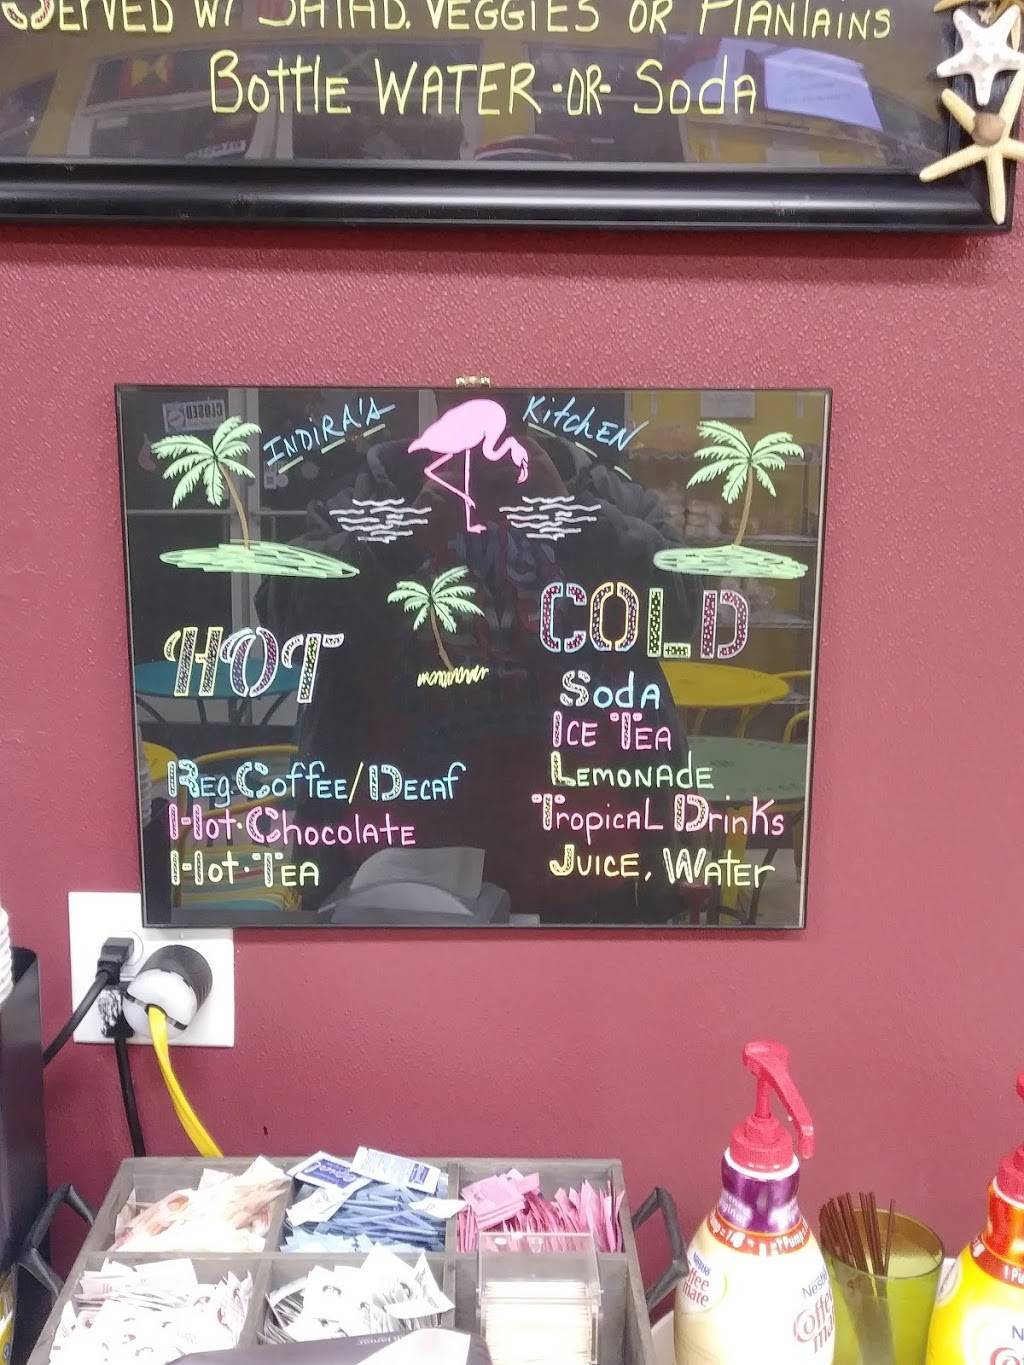 SERVED W/ SALAD. VEGGIES OR PLANTAINS
Bottle WATER -OR- Soda
INDIRA'A KitchEN
HOT
Reg. Coffee/Decaf
Hot.Chocolate
Hot.Tea
COLD
Soda
ICE TEA
LEMONADE
Tropical Drinks
JUICE, Water
CLOSED
Nestle
Coffee
mate
Nestle
Coffee
mate